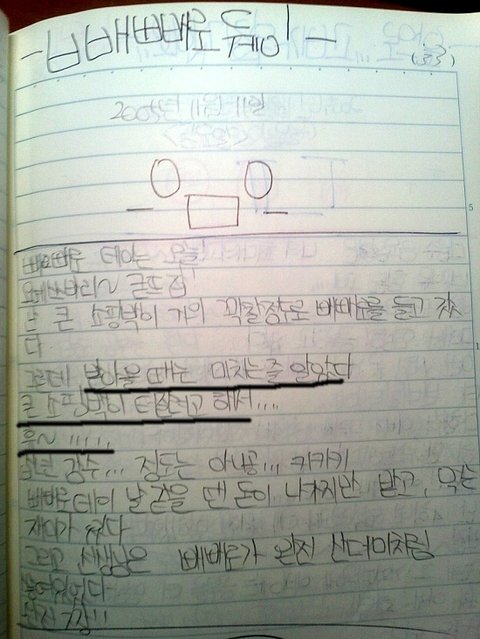 - 빼빼로 듀에이 -
2005년 11월 11일
<금요일>
빼빼로 데이는 오늘!
난 큰 쇼핑백이 거의 꽉찰정도로 빼빼로를 들고 갔
다
근데 받아올 때는 미치는줄 알았다
큰 쇼핑백이 터질려고 해서...
훗~ !!!!!
장수... 정도는 아니공... 키키키
빼빼로데이 날 같을 땐 돈이 나가지만 받고, 먹는
재미가 있다
그리고 선생님은 빼빼로가 완전 산더미처럼
쌓여있었다
완전 짱!!
5
1